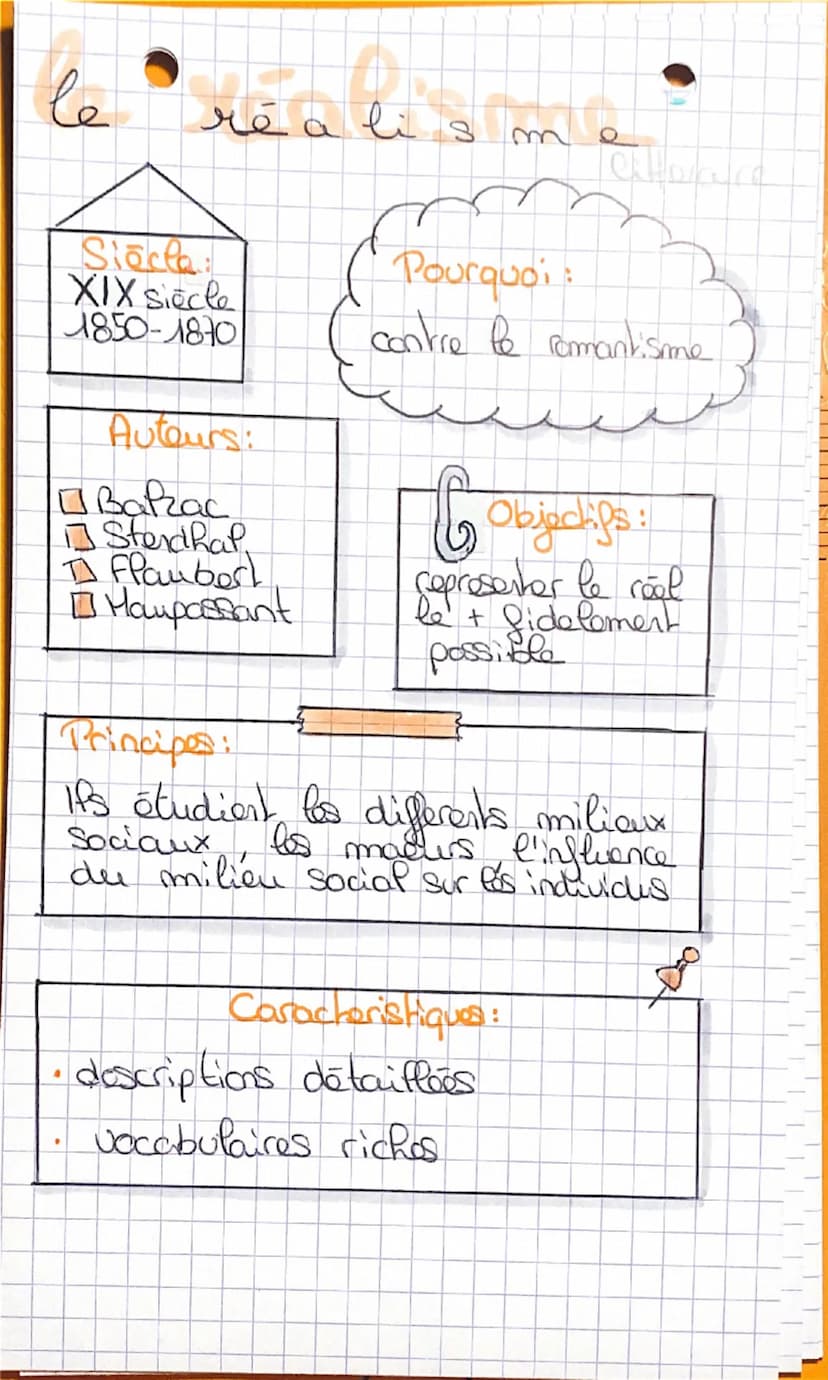 le réalisme
Siècle:
XIX siècle
1850-1870
Pourquoi:
contre le romantisme
Auteurs:
Balzac
Stendhal
Flaubert
Maupassant
Objectifs:
representer le réel
le + fidelement
possible
Principes:
Ils étudient les differents milieux
sociaux, les moeurs l'influence
du milieu social sur les individus
Caracteristiques:
• descriptions détaillées
• vocabulaires riches